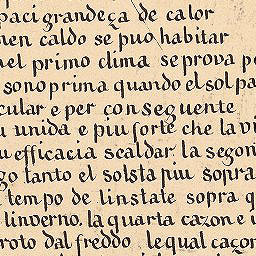 paci grandeça de calor
nen caldo se puo habitar
nel primo clima se prova p
sono prima quando el sol pa
cular e per conseguente
u unida e piu forte che la vi
u efficacia scaldar. la segon
go tanto el sol sta piu sopra
tempo de linstate sopra q
linverno. la quarta cazon e
roto dal freddo lequal caçon